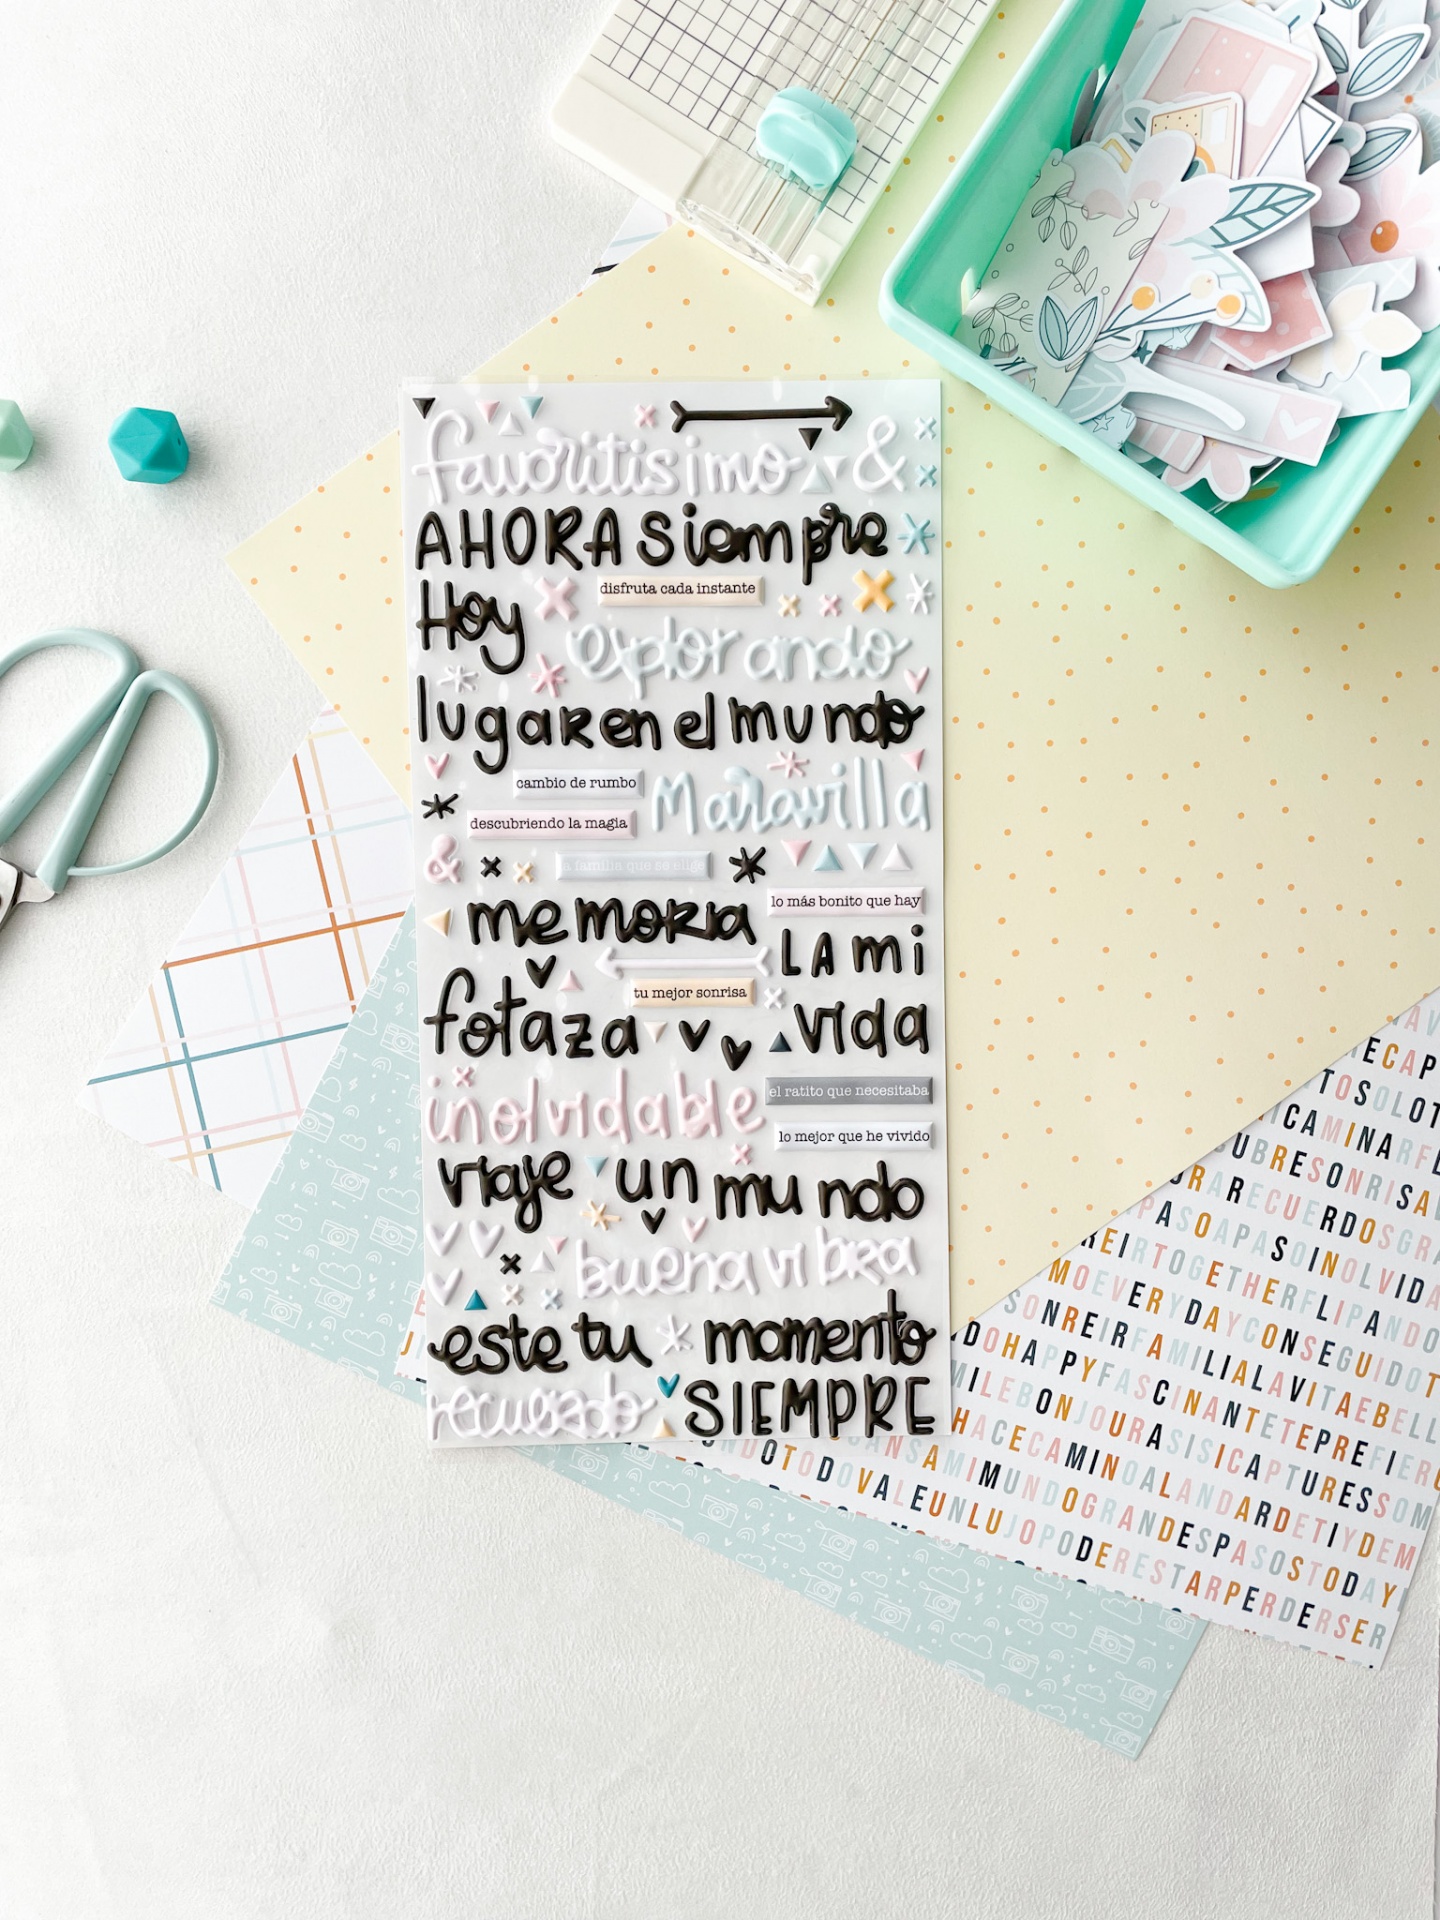 favoritisimo &
AHORA siempre
Hoy
disfruta cada instante
explorando
lugar en el mundo
cambio de rumbo
Maravilla
descubriendo la magia
&
la familia que se elige
lo más bonito que hay
memoria
LA mi
tu mejor sonrisa
fotaza
vida
inolvidable
el ratito que necesitaba
lo mejor que he vivido
viaje un mundo
buena vibra
este tu momento
recuerdo SIEMPRE
ECAP
TOSOLOT
ICAMINARFL
UBRESONRISA
RARECUERDOSGRA
PASOAPASOINOLVIDA
REIRTOGETHERFLIPANDO
MOEVERYDAYCONSEGUIDOT
SONREIRFAMILIALAVITAEBELL
DOHAPPYFASCINANTETEPREFIERO
MILEBONJOURASISICAPTURESSOM
HACECAMINOALANDARDETIYDEM
NDOTODOVALEUNLUJOPODERESTARPERDERSER
SANSAMIMUNDOGRANDESPASOSTODAY